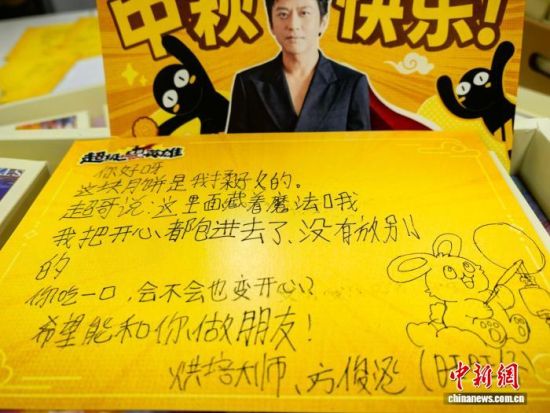 中秋 快乐!
超级英雄
你好呀
这块月饼是我揉好久的。
超哥说:这里面藏着魔法口我
我把开心都包进去了、没有放别
的
你吃一口,会不会也变开心?
希望能和你做朋友!
烘培大师、方俊
中新網
www.chinanews.com.cn